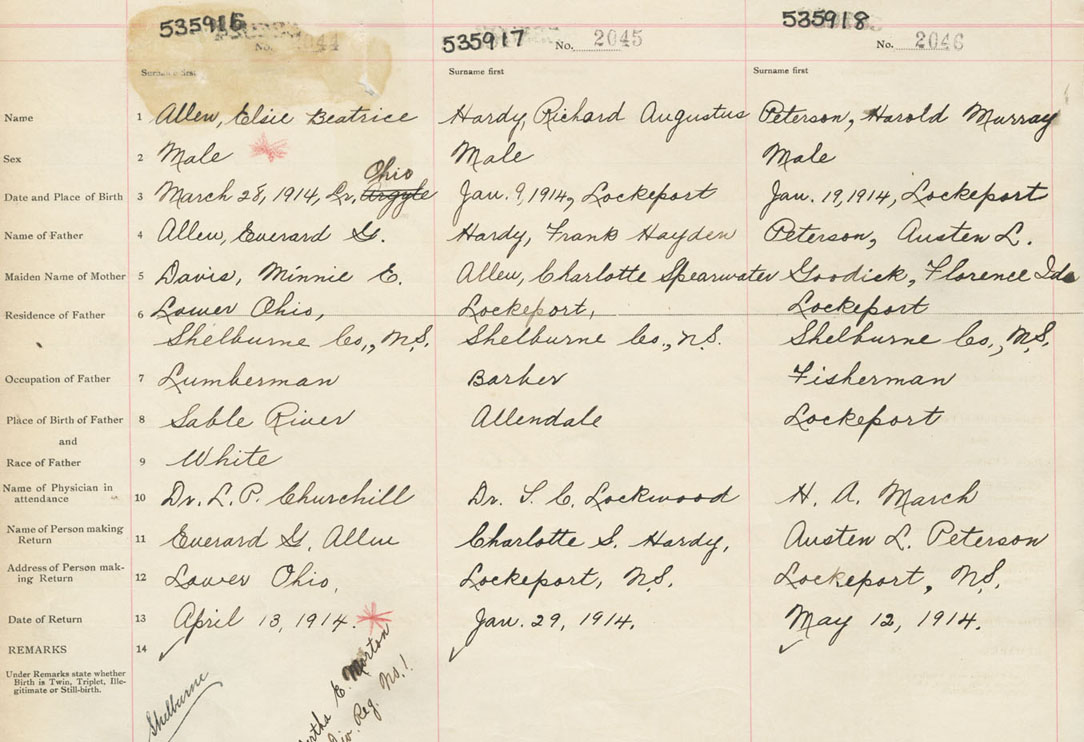 535916 535917 535918
No. 2044 No. 2045 No. 2046
Surname first Surname first Surname first
Name 1 Allen, Elsie Beatrice Hardy, Richard Augustus Peterson, Harold Murray
Sex 2 Male Male Male
Ohio
Date and Place of Birth 3 March 28, 1914, Lr. Argyle Jan. 9, 1914, Lockeport Jan. 19, 1914, Lockeport
Name of Father 4 Allen, Everard G. Hardy, Frank Hayden Peterson, Austen L.
Maiden Name of Mother 5 Davis, Minnie E. Allen, Charlotte Spearwater Goodick, Florence Ida
Residence of Father 6 Lower Ohio, Lockeport, Lockeport
Shelburne Co., N.S. Shelburne Co., N.S. Shelburne Co., N.S.
Occupation of Father 7 Lumberman Barber Fisherman
Place of Birth of Father 8 Sable River Allendale Lockeport
and
Race of Father 9 White
Name of Physician in
attendance 10 Dr. L. P. Churchill Dr. T. C. Lockwood H. A. March
Name of Person making
Return 11 Everard G. Allen Charlotte S. Hardy, Austen L. Peterson
Address of Person mak-
ing Return 12 Lower Ohio, Lockeport, N.S. Lockeport, N.S.
Date of Return 13 April 13, 1914. Jan. 29, 1914. May 12, 1914.
REMARKS 14
Under Remarks state whether
Birth is Twin, Triplet, Ille-
gitimate or Still-birth.
Shelburne
E. Morton
Div. Reg. No. 1.